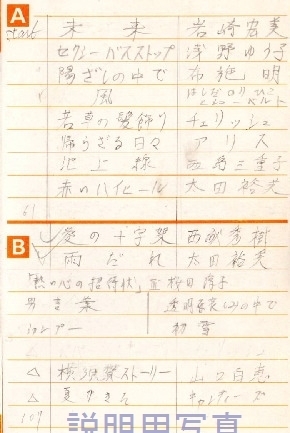 A
start 未来 岩崎宏美
セクシーバスストップ 浅野ゆう子
陽ざしの中で 布施明
風 はしだのりひことシューベルツ
若草の髪かざり チェリッシュ
帰らざる日々 アリス
池上線 西島三重子
赤いハイヒール 太田裕美
61
B
愛の十字架 西城秀樹
雨だれ 太田裕美
「熱い心の招待状」 桜田淳子
言葉 透明 の中で
初雪
△ 横須賀ストーリー 山口百恵
△ 夏がきた キャンディーズ
109
説明用写真